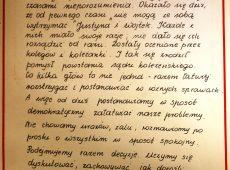 czasami nieporozumienia. Okazało się dziś,
że od pewnego czasu nie mogą ze sobą
wytrzymać Justyna i Wojtek. Każde z
nich miało swoje racje, nie dało się ich
rozsądzić od razu. Zostały ocenione przez
kolegów i koleżanki. I tak się zrodził
pomysł powstania sądu koleżeńskiego.
Co kilka głów to nie jedna - razem łatwiej
rozstrzygać i postanawiać w różnych sprawach.
A więc od dziś postanowiliśmy w sposób
demokratyczny załatwiać nasze problemy.
Nie chowamy urazów, żalu, rozmawiamy po
prostu o wszystkim w sposób spokojny.
Podejmujemy razem decyzje. Uczymy się
dyskutować, zachowywać jak dorośli